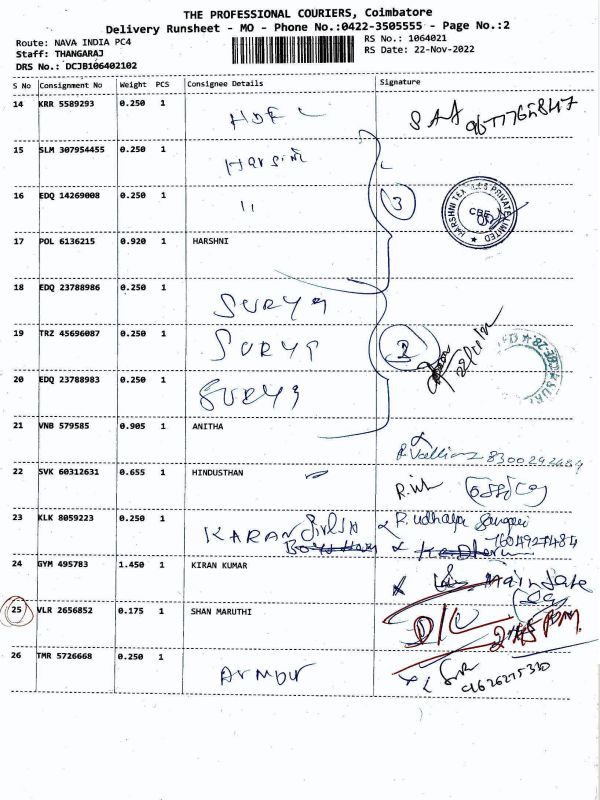 THE PROFESSIONAL COURIERS, Coimbatore
Delivery Runsheet - MO - Phone No.:0422-3505555 - Page No.:2
Route: NAVA INDIA PC4
RS No.: 1064021
Staff: THANGARAJ
RS Date: 22-Nov-2022
DRS No.: DCJB106402102
S No Consignment No Weight PCS Consignee Details Signature
14 KRR 5589293 0.250 1
15 SLM 307954455 0.250 1 Harsini
16 EDQ 14269008 0.250 1 11
3
HARSHNI TEXTILES PRIVATE LIMITED
CBE
17 POL 6136215 0.920 1 HARSHNI
18 EDQ 23788986 0.250 1 SURYA
19 TRZ 45696087 0.250 1 SURYA
2
20 EDQ 23788983 0.250 1 SURYA
21 VNB 579585 0.905 1 ANITHA
22 SVK 60312631 0.655 1 HINDUSTHAN
23 KLK 8059223 0.250 1 KARAN
24 GYM 495783 1.450 1 KIRAN KUMAR
Main Gate
25 VLR 2656852 0.175 1 SHAN MARUTHI D/L 2:45 PM
26 TMR 5726668 0.250 1 Armour